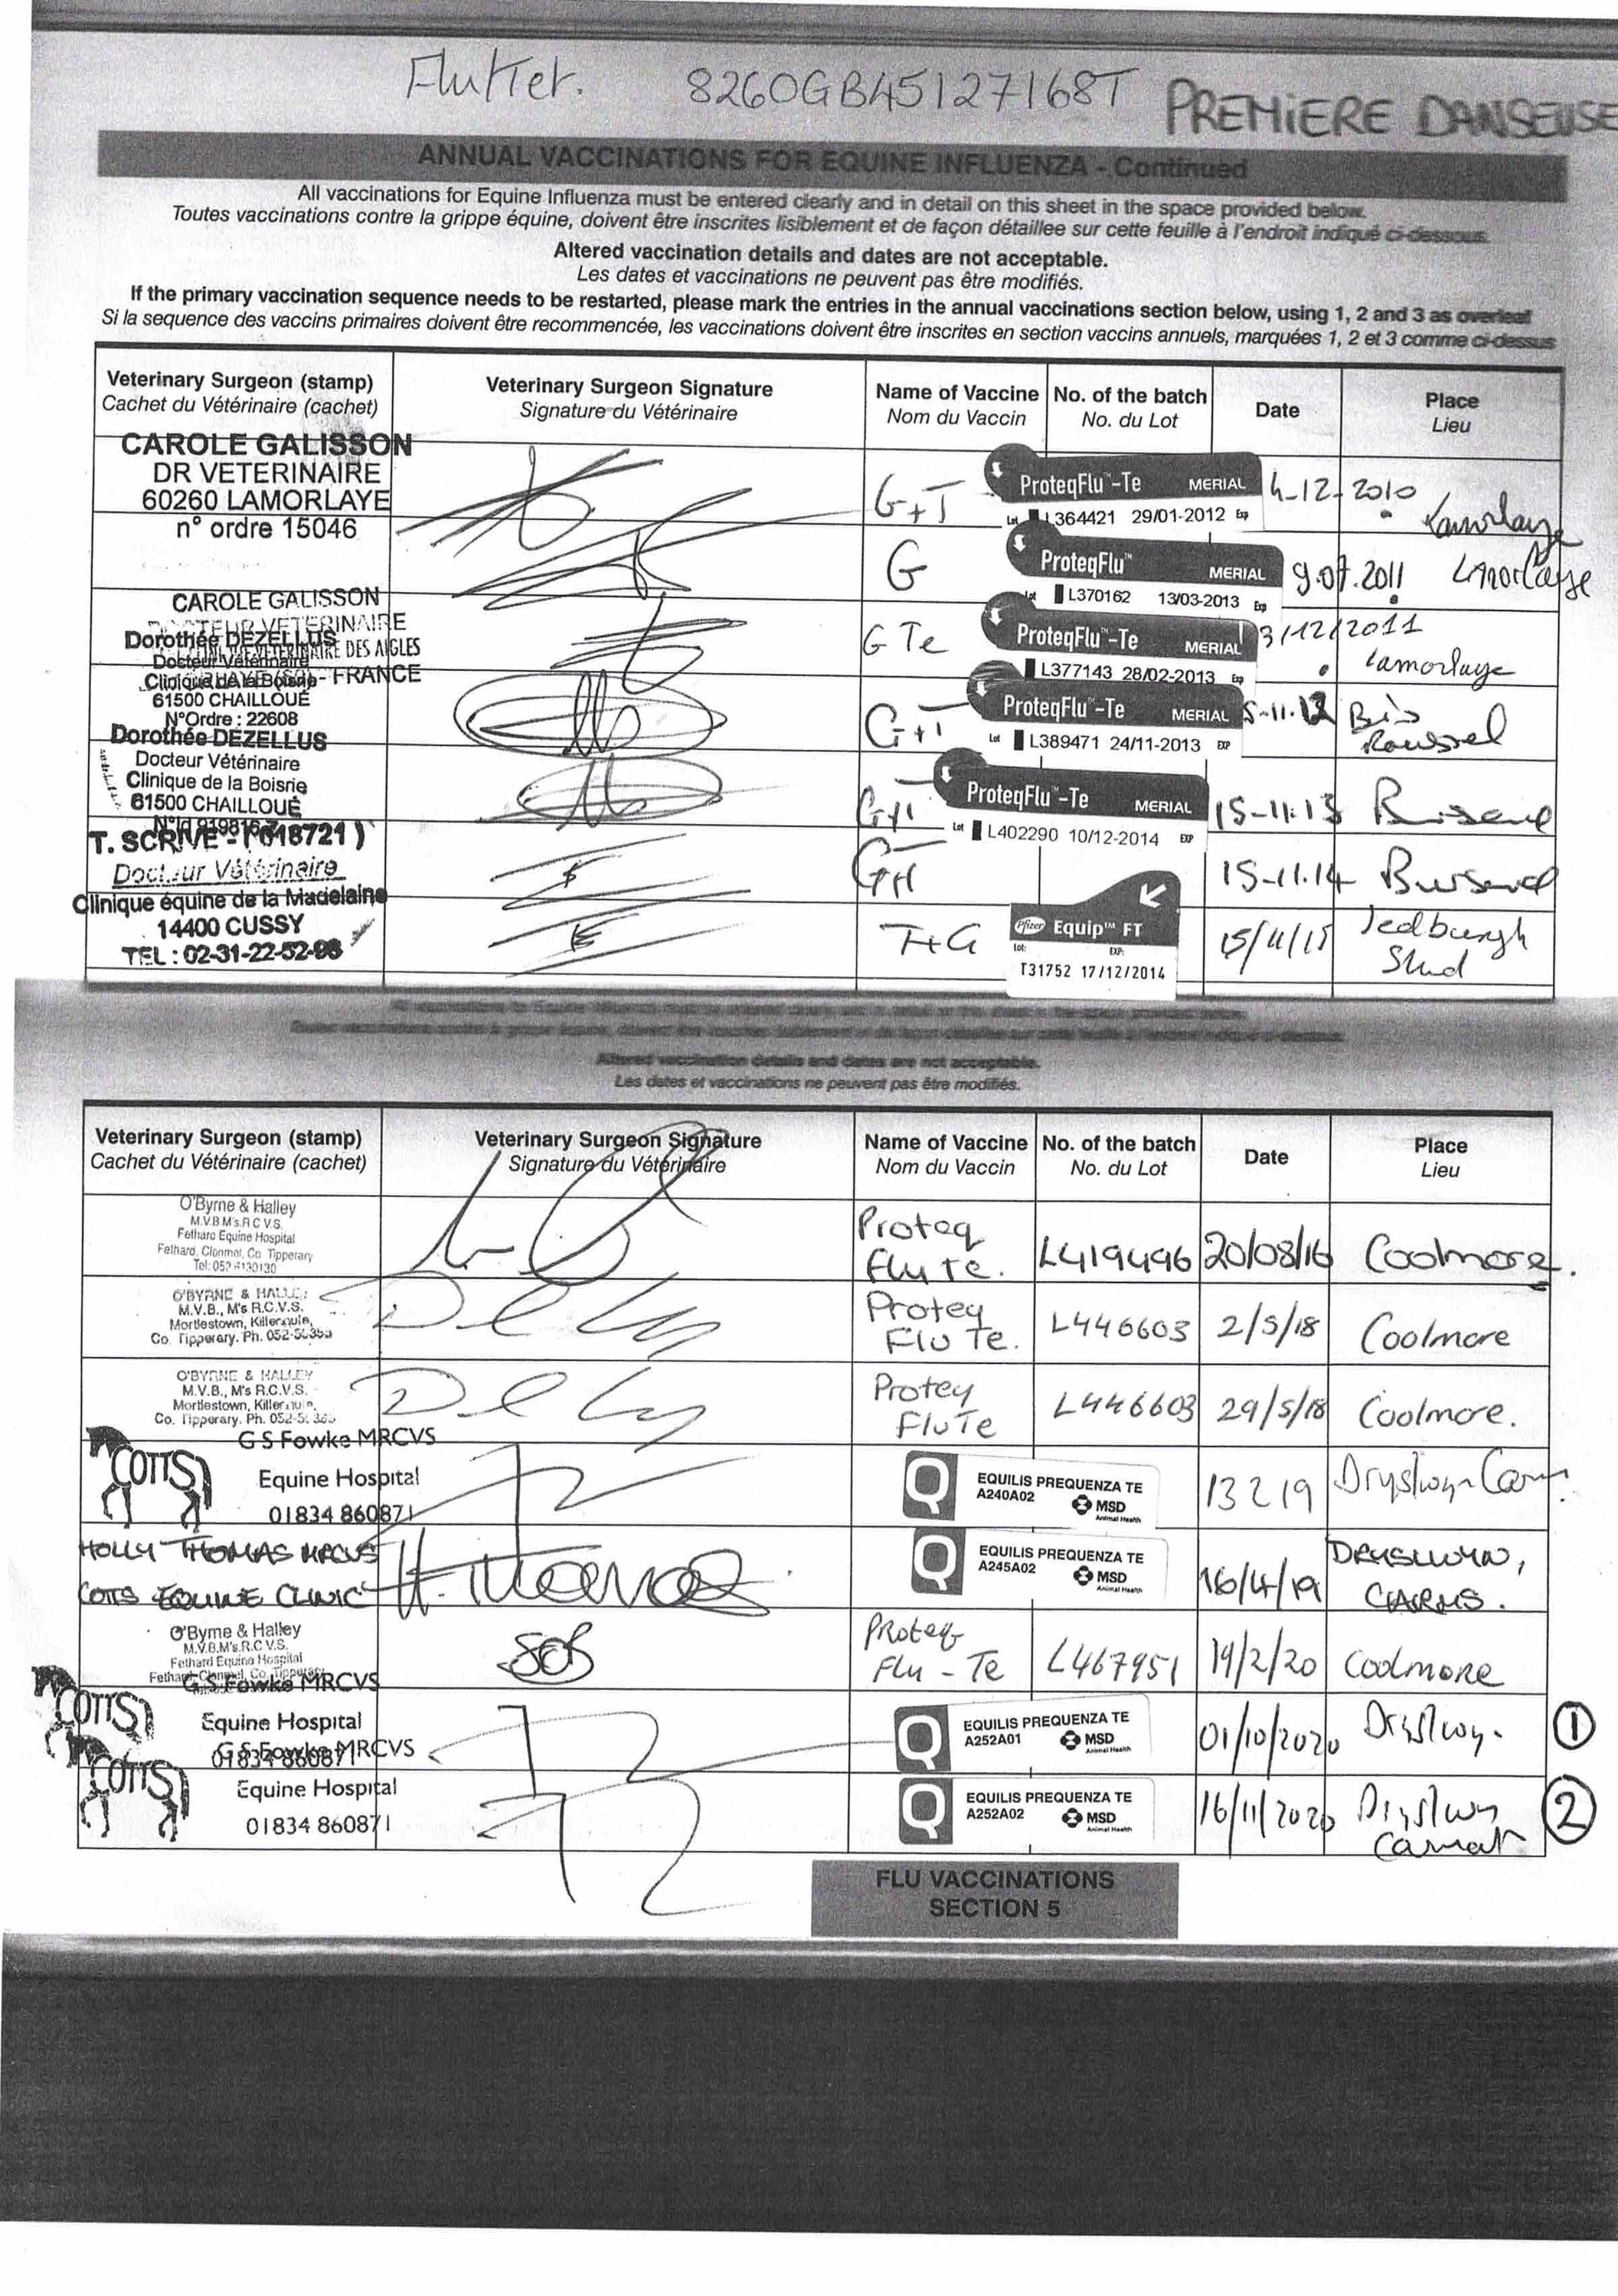 Flutter. 8260GB45127168T PREMIERE DANSEUSE
ANNUAL VACCINATIONS FOR EQUINE INFLUENZA - Continued
All vaccinations for Equine Influenza must be entered clearly and in detail on this sheet in the space provided below.
Toutes vaccinations contre la grippe équine, doivent être inscrites lisiblement et de façon détaillee sur cette feuille à l'endroit indiqué ci-dessous.
Altered vaccination details and dates are not acceptable.
Les dates et vaccinations ne peuvent pas être modifiés.
If the primary vaccination sequence needs to be restarted, please mark the entries in the annual vaccinations section below, using 1, 2 and 3 as overleaf
Si la sequence des vaccins primaires doivent être recommencée, les vaccinations doivent être inscrites en section vaccins annuels, marquées 1, 2 et 3 comme ci-dessus
Veterinary Surgeon (stamp) Veterinary Surgeon Signature Name of Vaccine No. of the batch Date Place
Cachet du Vétérinaire (cachet) Signature du Vétérinaire Nom du Vaccin No. du Lot Lieu
CAROLE GALISSON
DR VETERINAIRE
60260 LAMORLAYE
n° ordre 15046
G+T ProteqFlu™-Te MERIAL 4-12-2010 Lamorlaye
Lot L364421 29/01-2012 Exp
G ProteqFlu™ MERIAL 9.07.2011 Lamorlaye
Lot L370162 13/03-2013 Exp
CAROLE GALISSON
DOCTEUR VETERINAIRE
DES AIGLES
FRANCE
G Te ProteqFlu™-Te MERIAL 3/12/2011 Lamorlaye
L377143 28/02-2013 Exp
Dorothée DEZELLUS
Docteur Vétérinaire
Clinique de la Boisrie
61500 CHAILLOUÉ
N°Ordre : 22608
G+T ProteqFlu™-Te MERIAL 5-11.12
Lot L389471 24/11-2013 EXP
Dorothée DEZELLUS
Docteur Vétérinaire
Clinique de la Boisrie
61500 CHAILLOUÉ
ProteqFlu™-Te MERIAL 15-11.13
Lot L402290 10/12-2014 EXP
T. SCRIVE - (018721)
Docteur Vétérinaire
Clinique équine de la Madelaine
14400 CUSSY
TEL : 02-31-22-52-98
15-11.14
T+G Pfizer Equip™ FT 15/11/15 Jedburgh Stud
Lot: EXP:
T31752 17/12/2014
Altered vaccination details and dates are not acceptable.
Les dates et vaccinations ne peuvent pas être modifiés.
Veterinary Surgeon (stamp) Veterinary Surgeon Signature Name of Vaccine No. of the batch Date Place
Cachet du Vétérinaire (cachet) Signature du Vétérinaire Nom du Vaccin No. du Lot Lieu
O'Byrne & Halley
M.V.B M's.R C V.S.
Fethard Equine Hospital
Fethard, Clonmel, Co Tipperary
Tel: 052 6130130
Proteq Flu Te. L419496 20/08/16 Coolmore.
O'BYRNE & HALLEY
M.V.B., M's R.C.V.S.
Mortlestown, Killenaule,
Co. Tipperary. Ph. 052-56355
Proteq Flu Te. L446603 2/5/18 Coolmore
O'BYRNE & HALLEY
M.V.B., M's R.C.V.S.
Mortlestown, Killenaule,
Co. Tipperary.
Proteq FluTe L446603 29/5/18 Coolmore.
G S Fowke MRCVS
COTTS
Equine Hospital
01834 860871
EQUILIS PREQUENZA TE
A240A02 MSD
Animal Health
13 2 19 Dryslwyn
HOLLY THOMAS MRCVS
COTTS EQUINE CLINIC
H. Thomas
EQUILIS PREQUENZA TE
A245A02 MSD
Animal Health
16/4/19 DRYSLWYN, CARMS.
O'Byrne & Halley
M.V.B.M's.R.C.V.S.
Fethard Equine Hospital
Fethard, Clonmel, Co. Tipperary
SOB
Proteq Flu-Te L467951 19/2/20 Coolmore
G S Fowke MRCVS
COTTS
Equine Hospital
01834 860871
EQUILIS PREQUENZA TE
A252A01 MSD
Animal Health
01/10/2020 Dryslwyn 1
G S Fowke MRCVS
COTTS
Equine Hospital
01834 860871
EQUILIS PREQUENZA TE
A252A02 MSD
Animal Health
16/11/2020 Dryslwyn 2
FLU VACCINATIONS
SECTION 5